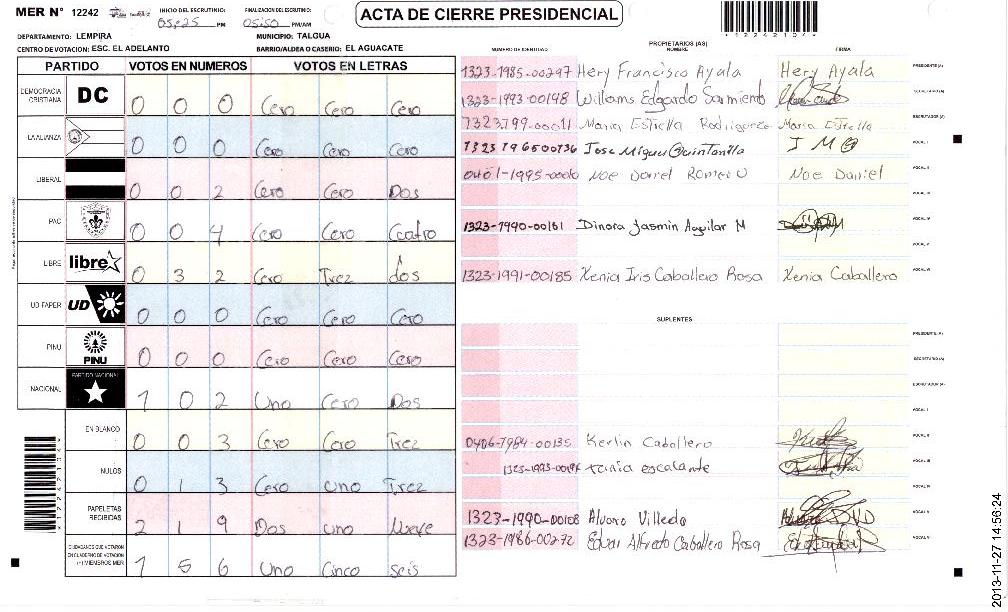 MER N° 12242
INICIO DEL ESCRUTINIO: 05:25 PM
FINALIZACION DEL ESCRUTINIO: 05:50 PM/AM
ACTA DE CIERRE PRESIDENCIAL
DEPARTAMENTO: LEMPIRA
MUNICIPIO: TALGUA
CENTRO DE VOTACION: ESC. EL ADELANTO
BARRIO/ALDEA O CASERIO: EL AGUACATE
PARTIDO VOTOS EN NUMEROS VOTOS EN LETRAS
DEMOCRACIA CRISTIANA DC 0 0 0 Cero Cero Cero
LA ALIANZA 0 0 0 Cero Cero Cero
LIBERAL 0 0 2 Cero Cero Dos
PAC 0 0 4 Cero Cero Cuatro
LIBRE libre 0 3 2 Cero Trez dos
UD FAPER UD 0 0 0 Cero Cero Cero
PINU PINU 0 0 0 Cero Cero Cero
NACIONAL PARTIDO NACIONAL 1 0 2 Uno Cero Dos
EN BLANCO 0 0 3 Cero Cero Trez
NULOS 0 1 3 Cero uno Trez
PAPELETAS RECIBIDAS 2 1 9 Dos uno Nueve
CIUDADANOS QUE VOTARON EN CUADERNO DE VOTACION (+) MIEMBROS MER 1 5 6 Uno Cinco seis
NUMERO DE IDENTIDAD PROPIETARIOS (AS) NOMBRE FIRMA
1323-1985-00297 Hery Francisco Ayala Hery Ayala PRESIDENTE (A)
1323-1993-00148 Williams Edgardo Sarmiento SECRETARIO (A)
Maria Estrella Rodriguez Maria Estrella ESCRUTADOR (A)
Jose Miguel Quintanilla J M Q VOCAL I
Noe Daniel Romero Noe Daniel VOCAL II
VOCAL III
1323-1990-00161 Dinora Jasmin Aguilar M VOCAL IV
VOCAL V
1323-1991-00185 Xenia Iris Caballero Rosa Xenia Caballero VOCAL VI
SUPLENTES
PRESIDENTE (A)
SECRETARIO (A)
ESCRUTADOR (A)
VOCAL I
0406-1984-00135 Kerlin Caballero VOCAL II
escalante VOCAL III
VOCAL IV
1323-1990-00108 Alvaro Villeda VOCAL V
1323-1986-00272 Edgar Alfredo Caballero Rosa VOCAL VI
12242104
2013-11-27 14:56:24